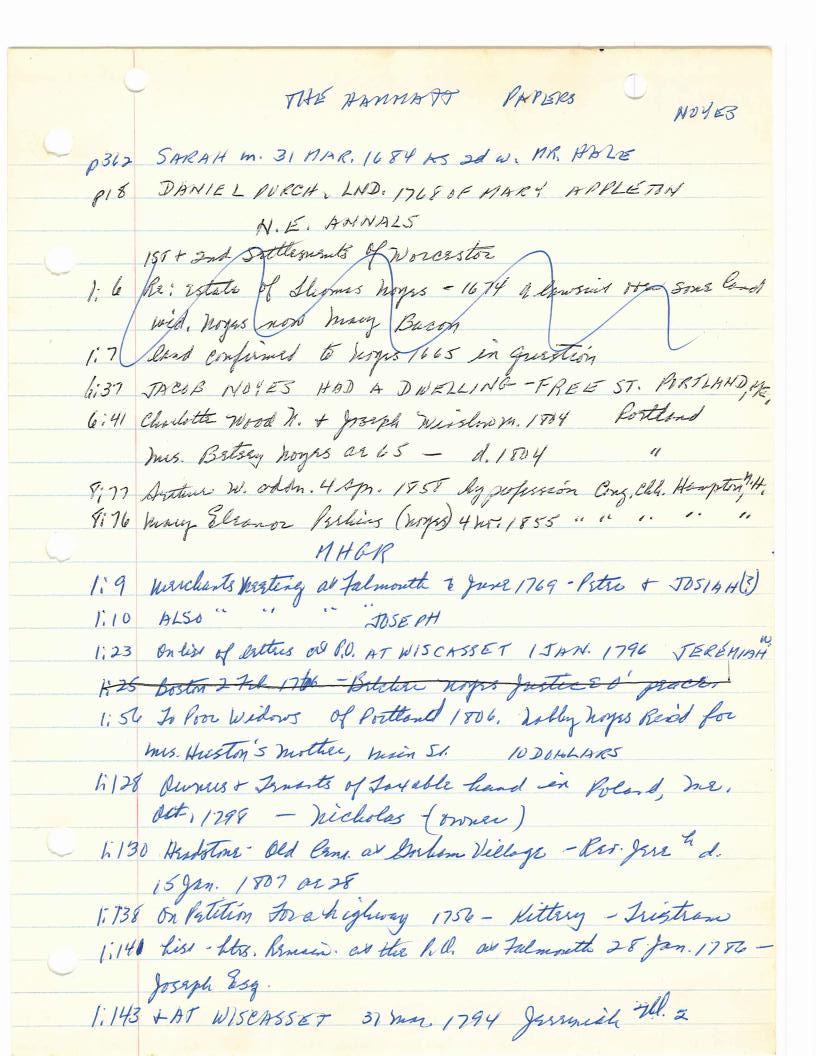 THE HAMMATT PAPERS
NOYES
p362 SARAH m. 31 MAR. 1684 AS 2d w. MR. HALE
p18 DANIEL PURCH. LND. 1768 OF MARY APPLETON
N.E. ANNALS
1st + 2nd Settlements of Worcester
1:6 Re: estate of Thomas Noyes - 1674 a lawsuit over some land
wid. Noyes now Mary Bacon
1:7 land confirmed to Noyes 1665 in question
6:37 JACOB NOYES HAD A DWELLING - FREE ST. PORTLAND, ME.
6:41 Charlotte Wood N. & Joseph Winslow m. 1804 Portland
Mrs. Betsey Noyes ae 65 — d. 1804 "
8:77 Arthur W. adm. 4 Apr. 1858 by profession Cong. Chh. Hampton, N.H.
8:76 Mary Eleanor Perkins (Noyes) 4 Nov. 1855 " " " " "
MHGR
1:9 Merchants Meeting at Falmouth June 1769 - Peter & JOSIAH(?)
1:10 ALSO " " " " JOSEPH
1:23 On list of letters at P.O. AT WISCASSET 1 JAN. 1796 JEREMIAH N.
1:25 Boston 2 Feb. - Belcher Noyes Justice O' peace
1:56 To Poor Widows of Portland 1806. Nabby Noyes Rec'd for
Mrs. Huston's Mother, Main St. 10 DOLLARS
1:128 Owners & Tenants of Taxable Land in Poland, Me.
Oct. 1798 — Nicholas - (owner)
1:130 Headstone - Old Cem. at Gorham Village - Rev. Jere h d.
15 Jan. 1807 ae 28
1:138 On Petition For a highway 1756 - Kittery - Tristram
1:141 List - ltrs. Remain. at the P.O. at Falmouth 28 Jan. 1786 -
Joseph Esq.
1:143 & AT WISCASSET 31 Mar. 1794 Jeremiah 2